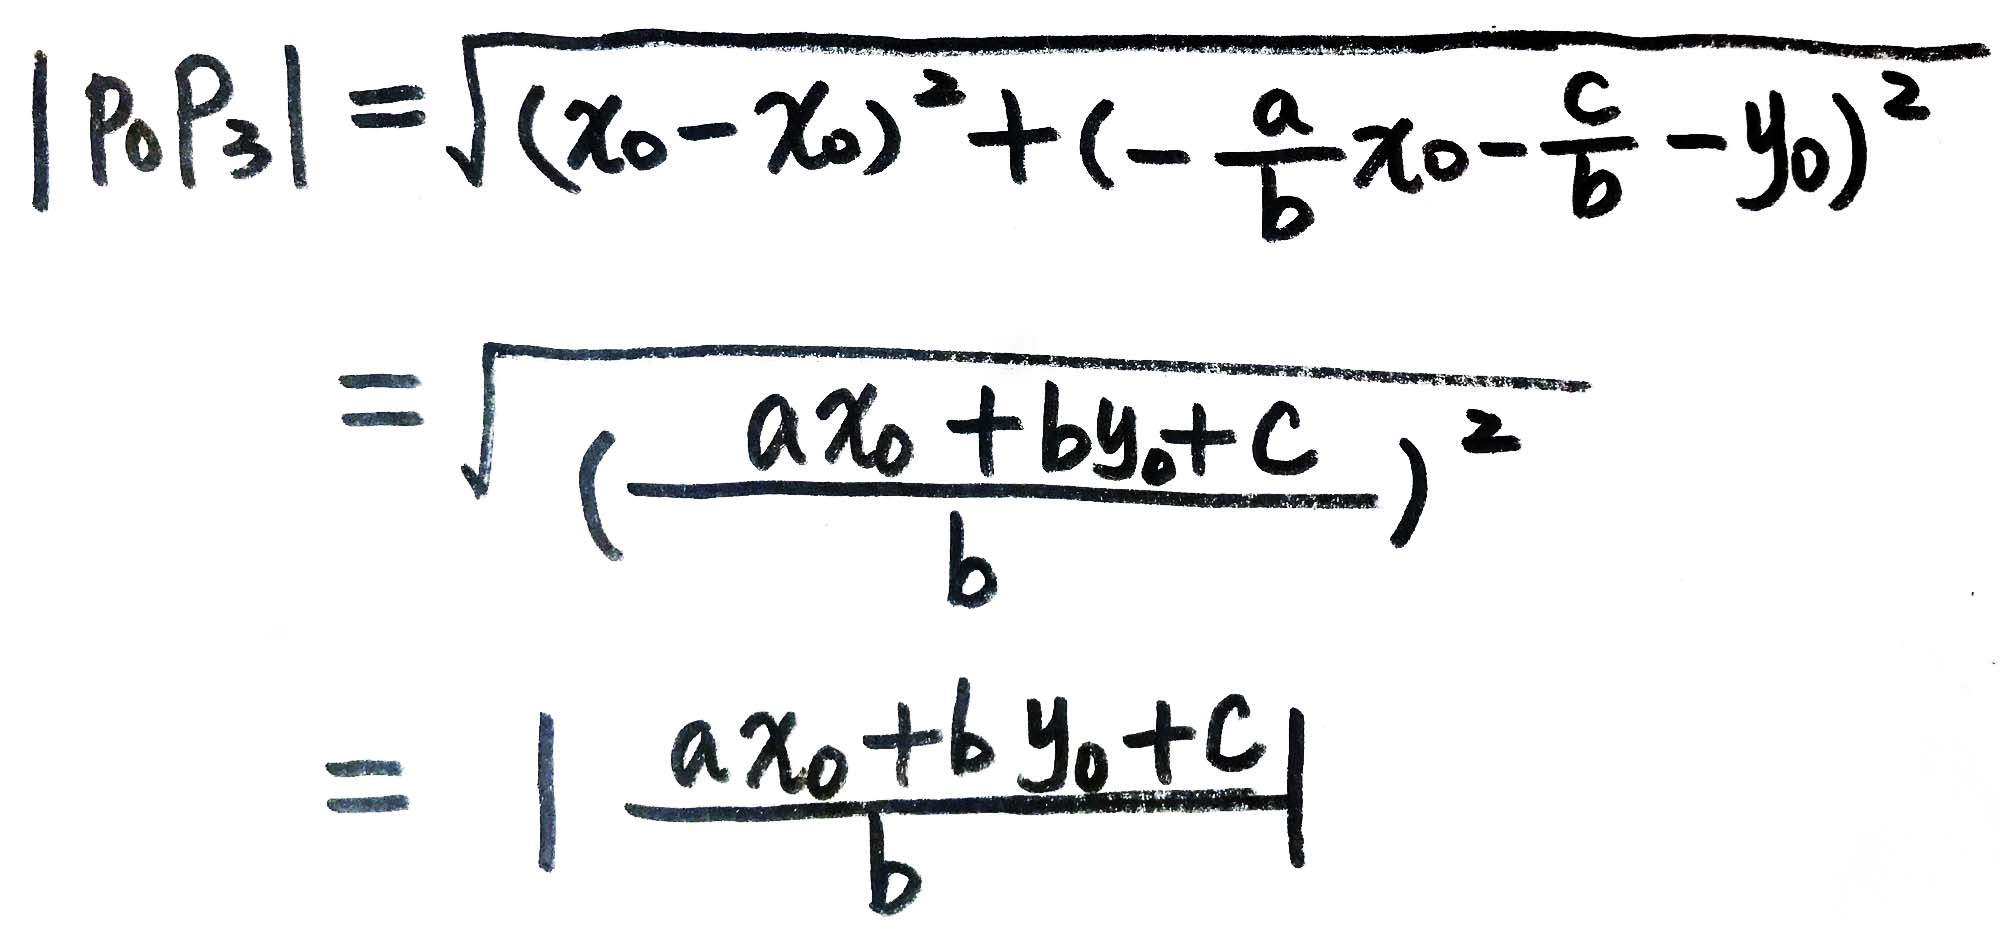 |P₀P₃| = √((x₀ - x₀)² + (-a/b x₀ - c/b - y₀)²)
= √((ax₀ + by₀ + c)/b)²
= |(ax₀ + by₀ + c)/b|